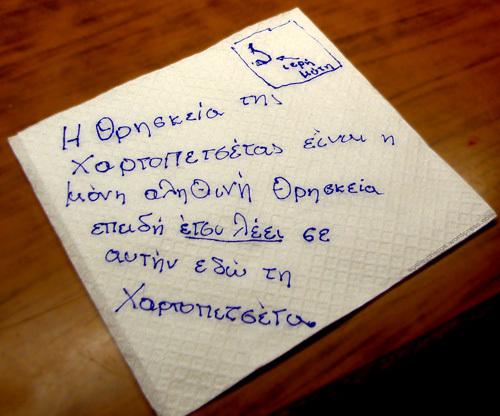 ιερή
μύτη
Η Θρησκεία της
Χαρτοπετσέτας είναι η
μόνη αληθινή Θρησκεία
επειδή έτσι λέει σε
αυτήν εδώ τη
Χαρτοπετσέτα.